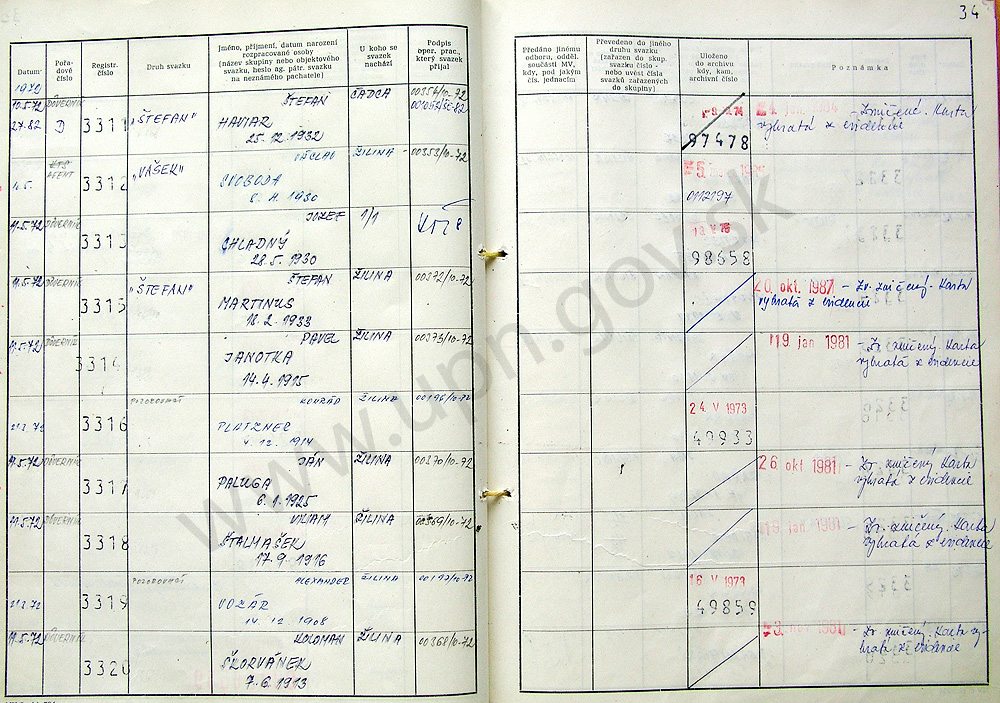 34
Datum
Pořadové číslo
Registr. číslo
Druh svazku
Jméno, příjmení, datum narození
rozpracované osoby
(název skupiny nebo objektového
svazku, heslo ag. pátr. svazku
na neznámého pachatele)
U koho se
svazek
nachází
Podpis
oper. prac.,
který svazek
přijal
Předáno jinému
odboru, odděl.
součásti MV,
kdy, pod jakým
čís. jednacím
Převedeno do jiného
druhu svazku
(zařazen do skup.
svazku číslo -
nebo uvést čísla
svazků zařazených
do skupiny)
Uloženo
do archivu
kdy, kam,
archivní číslo
Poznámka
1972
10.5.72 DÔVERNÍK 3311 "ŠTEFAN" ŠTEFAN ČADCA 00354/10-72
27.82 D
HAVIAR
25. 12. 1932
97478
- Zničené. Karta
vybratá z evidencie
AGENT 3312 "VAŠEK" VÁCLAV ŽILINA 00353/10-72
SVOBODA
1930
0112197
11.5.72 DÔVERNÍK 3313 JOZEF 1/1
CHLADNÝ
28.5. 1930
98658
11.5.72 DÔVERNÍK 3315 "ŠTEFAN" ŠTEFAN ŽILINA 00372/10-72
MARTINUS
18. 2. 1933
20. okt. 1987 - Zv. zničený. Karta
vybratá z evidencie
11.5.72 DÔVERNÍK 3314 PAVEL ŽILINA 00373/10-72
JANOTKA
14.4. 1915
19. jan 1981 - Zv. zničený. Karta
vybratá z evidencie
3316 POZOROVANÝ KONRÁD ŽILINA 00196/10-72
PLATZNER
4. 12. 1914
24. V 1973
49933
11.5.72 DÔVERNÍK 3317 JÁN ŽILINA 00370/10-72
PALUGA
6. 1. 1925
26. okt 1981 - Zv. zničený. Karta
vybratá z evidencie
11.5.72 DÔVERNÍK 3318 VILIAM ŽILINA 00369/10-72
ŠTALMAŠEK
17. 9. 1916
19. jan. 1981 - Zv. zničený. Karta
vybratá z evidencie
3319 POZOROVANÝ ALEXANDER ŽILINA 00197/10-72
VOZÁR
14. 12. 1908
16. V 1973
49859
11.5.72 DÔVERNÍK 3320 KOLOMAN ŽILINA 00368/10-72
ŠKORVÁNEK
7. 6. 1913
1981 - Zv. zničený. Karta vy-
bratá z evidencie
www.upn.gov.sk